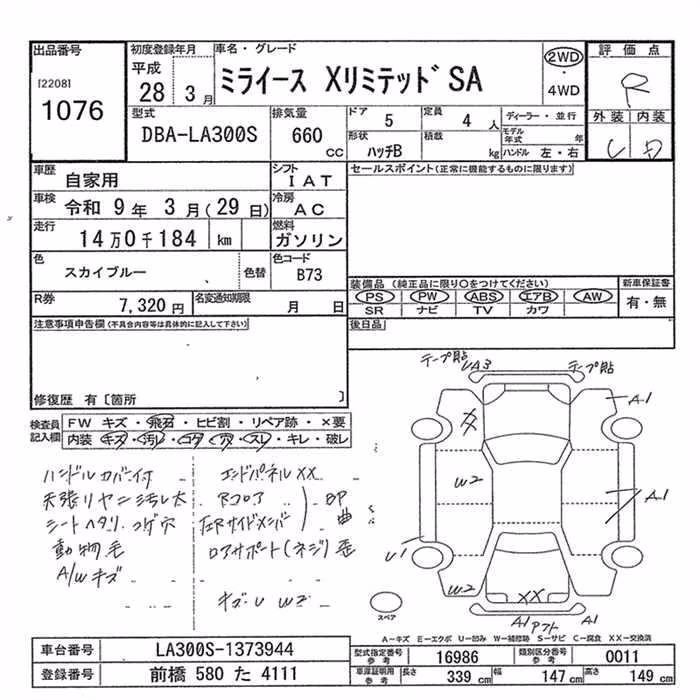 出品番号 初度登録年月 車名・グレード 評価点
[2208] 平成 ミライース Xリミテッド SA 2WD ・ 4WD R
1076 28 3月 外装 内装
型式 排気量 ドア 5 定員 4人 ディーラー・並行
DBA-LA300S 660 CC 形状 ハッチB 積載 kg モデル年式 年 ハンドル 左・右
車歴 自家用 シフト IAT セールスポイント(正常に機能するものに限ります)
車検 令和 9年 3月(29日) 冷房 AC
走行 14万0千184 km 燃料 ガソリン
色 スカイブルー 色替 色コード B73
装備品(純正品に限り○をつけてください) 新車保証書
R券 7,320円 名変通知期限 月 日 PS PW ABS エアB AW 有・無
SR ナビ TV カワ
注意事項申告欄(不具合内容等は具体的に記入して下さい) 後日品
修復歴 有〔箇所 〕
検査員記入欄 FW キズ・飛石・ヒビ割・リペア跡・×要
内装 キズ・汚レ・コゲ・穴・スレ・キレ・破レ
テープ貼 UA3 テープ貼
A1
ハンドルカバー付 エンドパネル XX
天張リヤニ汚レ大 Rコロア
シートヘタリ コゲ穴 左Rサイドメンバー
BP 曲
動物毛 ロアサポート(ネジ)歪
A/W キズ
キズ・U W2
W2 A1
U1
W2 XX
スペア A1 アフト A1
A-キズ E-エクボ U-凹み W-補修跡 S-サビ C-腐食 XX-交換済
車台番号 LA300S-1373944 型式指定番号 参考 16986 類別区分番号 参考 0011
登録番号 前橋 580 た 4111 車庫証明用 参考 長さ 339 cm 幅 147 cm 高さ 149 cm